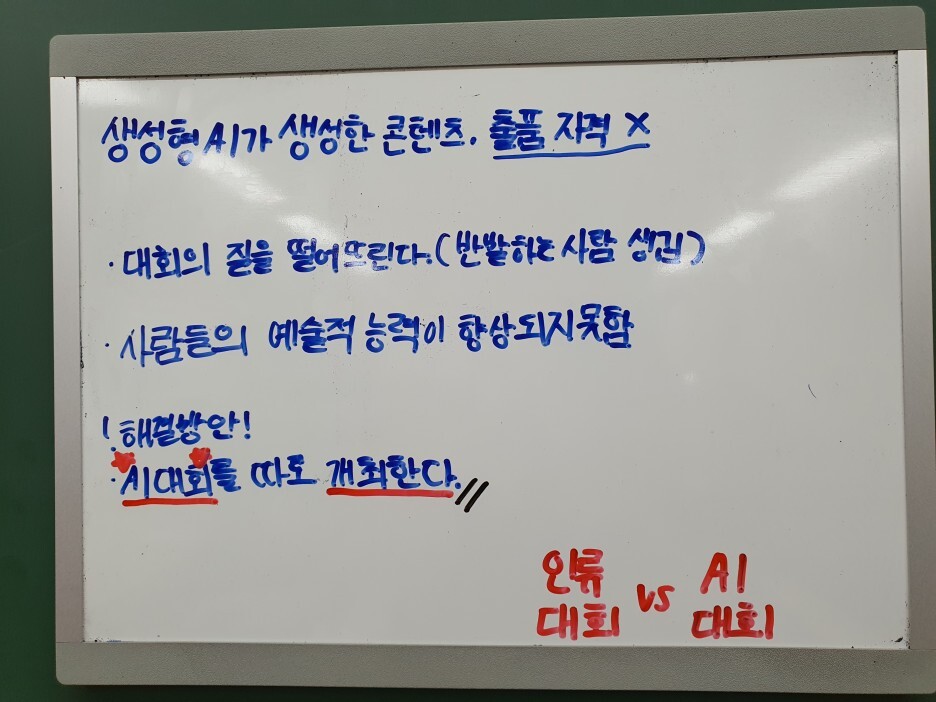 생성형AI가 생성한 콘텐츠, 출품 자격 X
· 대회의 질을 떨어뜨린다.(반발하는 사람 생김)
· 사람들의 예술적 능력이 향상되지못함
! 해결방안!
· AI대회를 따로 개최한다.
인류 대회 vs AI 대회